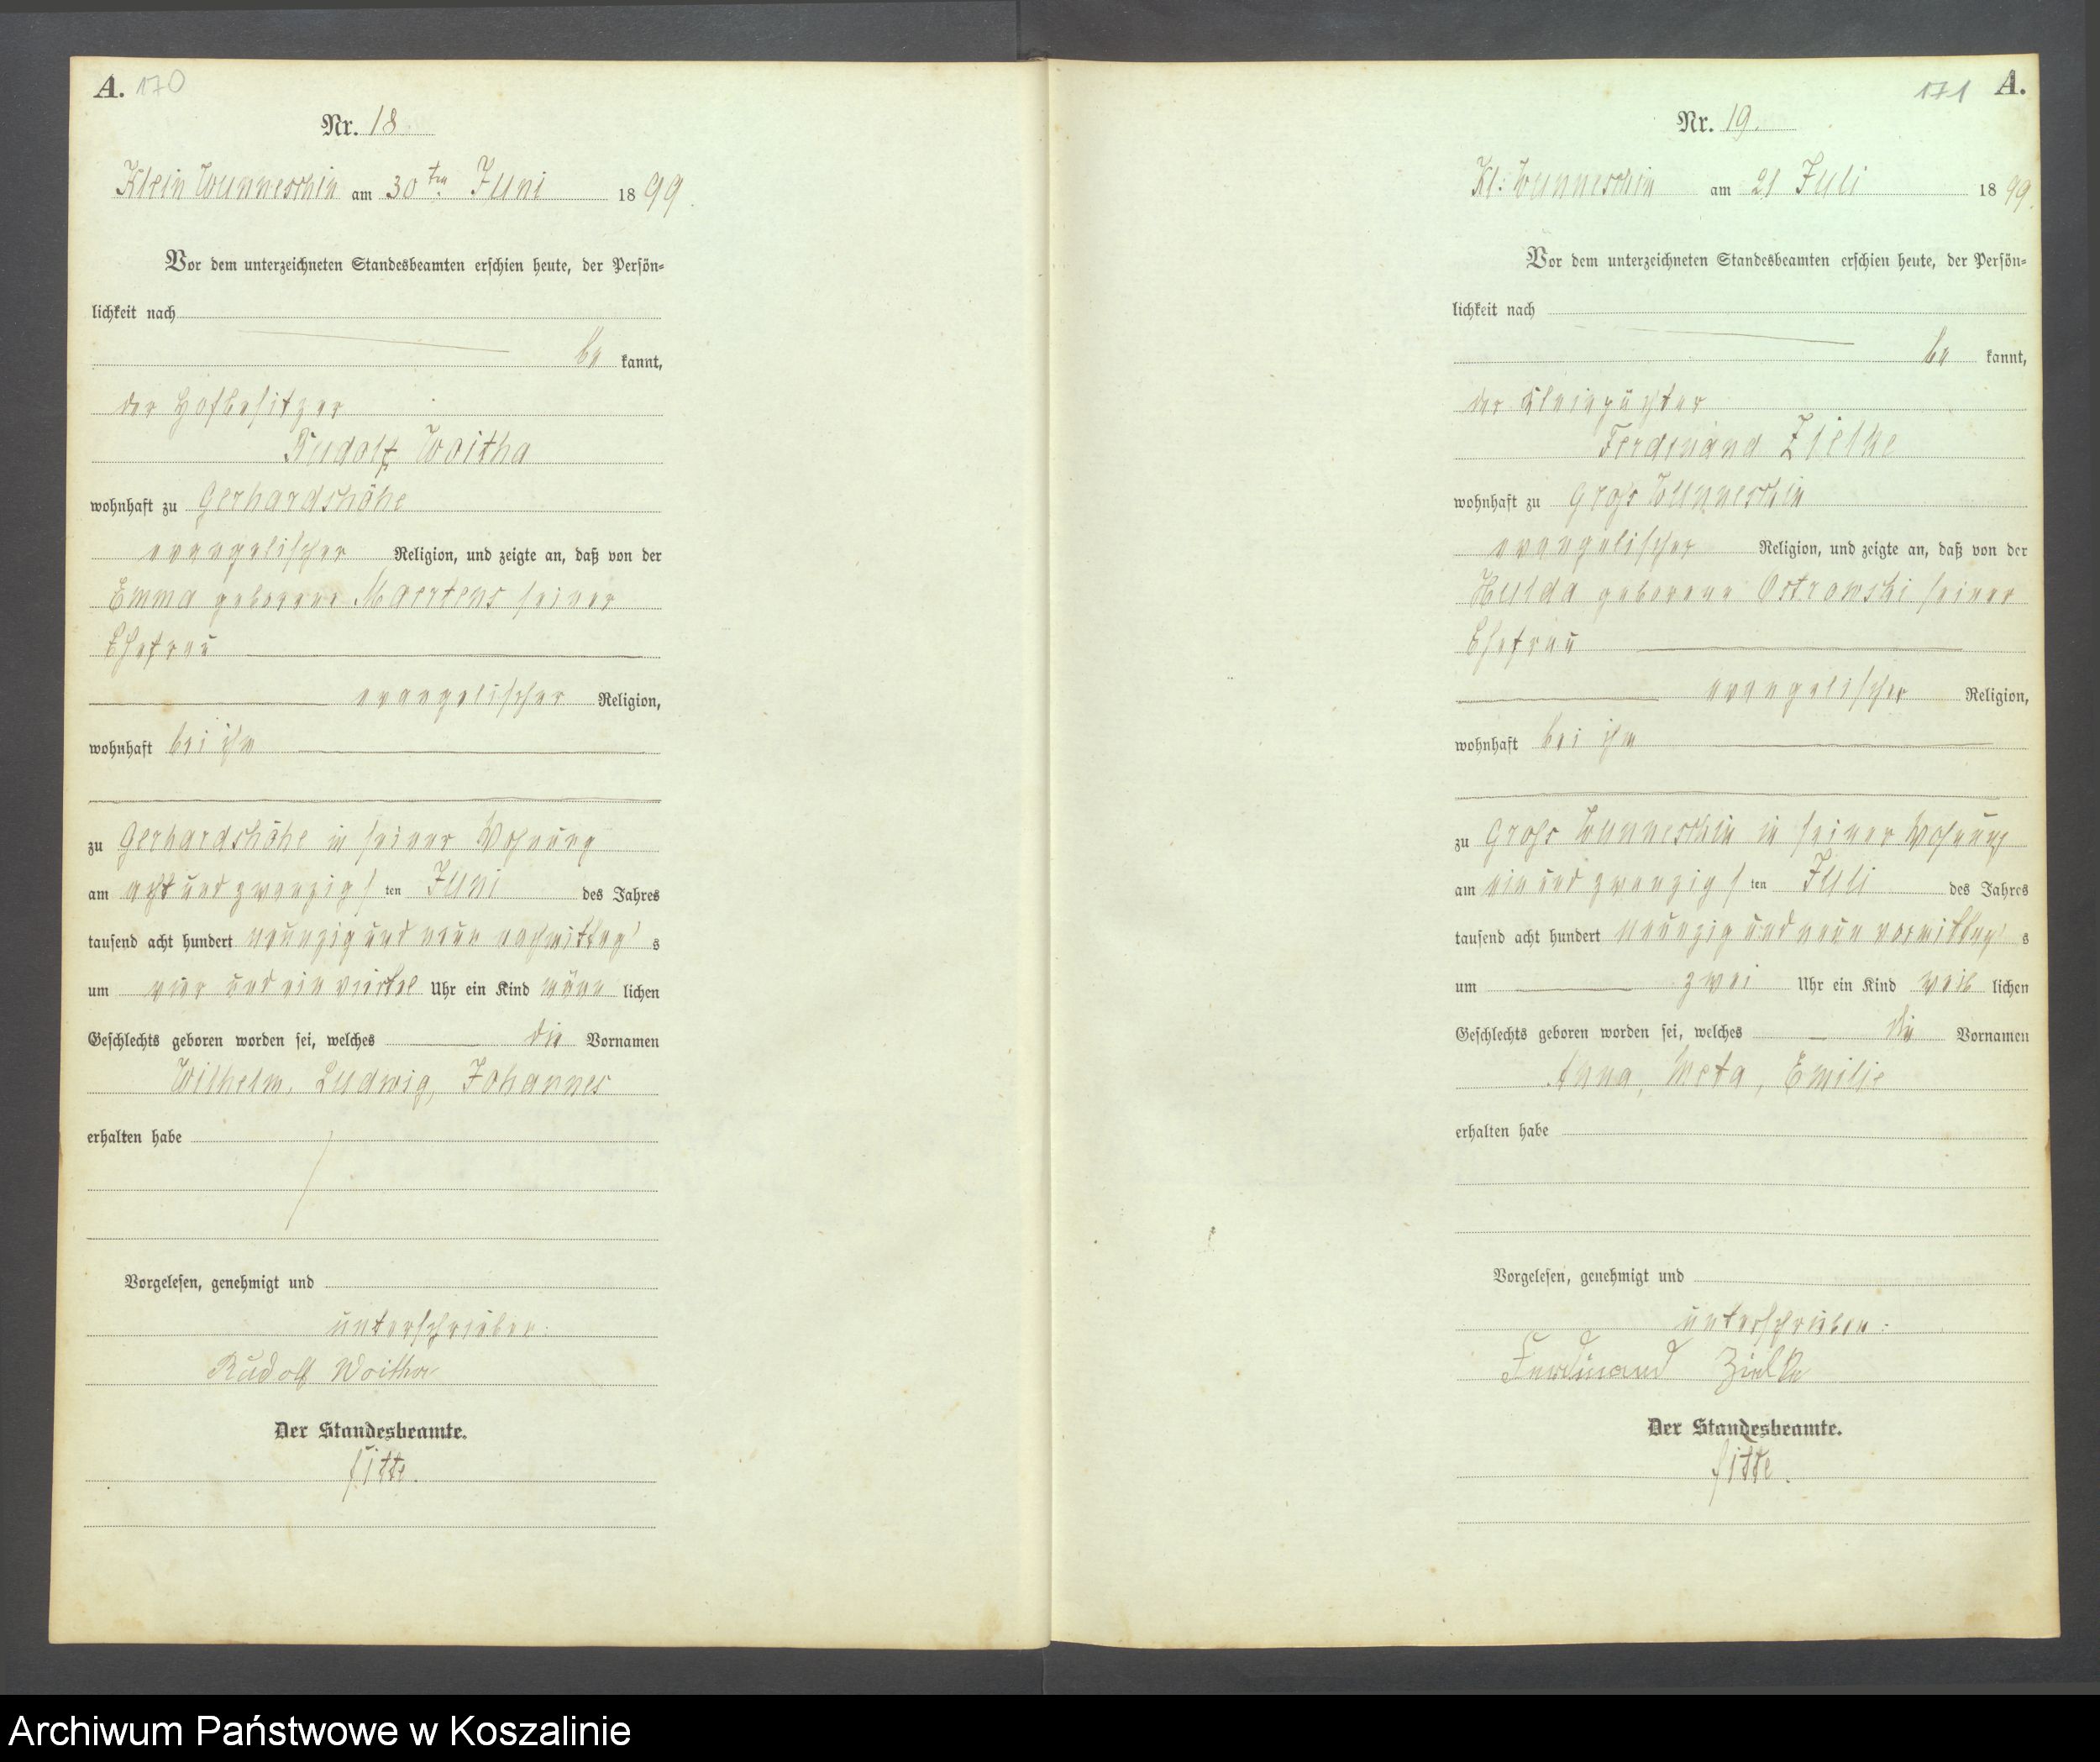 A. 170
Nr. 18
Klein Wunneschin am 30ten Juni 1899.
Vor dem unterzeichneten Standesbeamten erschien heute, der Persön-
lichkeit nach
be kannt,
der Hofbesitzer
Rudolf Woitha
wohnhaft zu Gerhardshöhe
evangelischer Religion, und zeigte an, daß von der
Emma geborene Maertens seiner
Ehefrau
evangelischer Religion,
wohnhaft bei ihm
zu Gerhardshöhe in seiner Wohnung
am acht und zwanzigsten Juni des Jahres
tausend acht hundert neunzig und neun nachmittags
um vier und ein viertel Uhr ein Kind männ lichen
Geschlechts geboren worden sei, welches die Vornamen
Wilhelm, Ludwig, Johannes
erhalten habe
Vorgelesen, genehmigt und
unterschrieben.
Rudolf Woitha
Der Standesbeamte.
171 A.
Nr. 19.
Kl: Wunneschin am 21 Juli 1899.
Vor dem unterzeichneten Standesbeamten erschien heute, der Persön-
lichkeit nach
be kannt,
der Kleinpächter
Ferdinand Zielke
wohnhaft zu Groß Wunneschin
evangelischer Religion, und zeigte an, daß von der
Hulda geborene Ostrowski seiner
Ehefrau
evangelischer Religion,
wohnhaft bei ihm
zu Groß Wunneschin in seiner Wohnung
am ein und zwanzigsten Juli des Jahres
tausend acht hundert neunzig und neun vormittags
um zwei Uhr ein Kind weib lichen
Geschlechts geboren worden sei, welches die Vornamen
Anna, Meta, Emilie
erhalten habe
Vorgelesen, genehmigt und
unterschrieben:
Ferdinand Zielke
Der Standesbeamte.
Archiwum Państwowe w Koszalinie